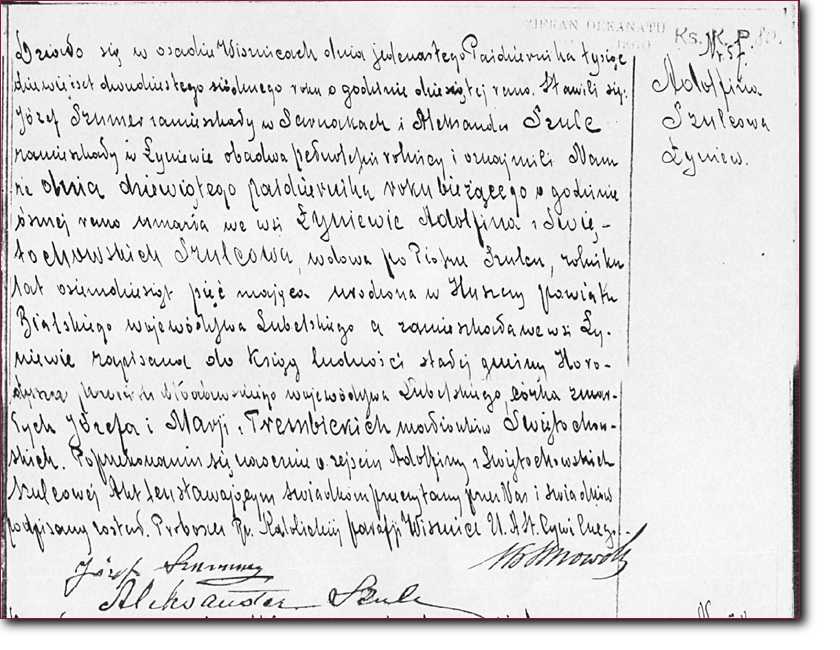 DZIEKAN DEKANATU
Ks. K. P.
Nr. 57.
Adolfina
Szulcowa
Żyniew.
Działo się w osadzie Wisznicach dnia jedenastego Października tysiąc
dziewięćset dwudziestego siódmego roku o godzinie dziesiątej rano. Stawili się:
Józef Szumer zamieszkały w Sarnakach i Aleksander Szulc
zamieszkały w Żyniewie obadwa pełnoletni rolnicy i oznajmili Nam
że dnia dziewiątego października roku bieżącego o godzinie
ósmej rano umarła we wsi Żyniewie Adolfina z Świę-
tochowskich Szulcowa, wdowa po Piotrze Szulcu, rolniku
lat osiemdziesiąt pięć mająca urodzona w Huszczy powiatu
Bialskiego województwa Lubelskiego a zamieszkała we wsi Ży-
niewie zapisana do ksiąg ludności stałej gminy Horo-
dyszcze powiatu Włodawskiego województwa Lubelskiego, córka zmar-
łych Józefa i Marji z Trembickich małżonków Swiętochow-
skich. Po przekonaniu się naocznie o zejściu Adolfiny z Swiętochowskich
Szulcowej Akt ten stawającym świadkom przeczytany przez Nas i świadków
podpisany został. Proboszcz Rz. Katolickiej parafji Wisznice U. A. St. Cywilnego.
Józef Szumer
Aleksander Szulc